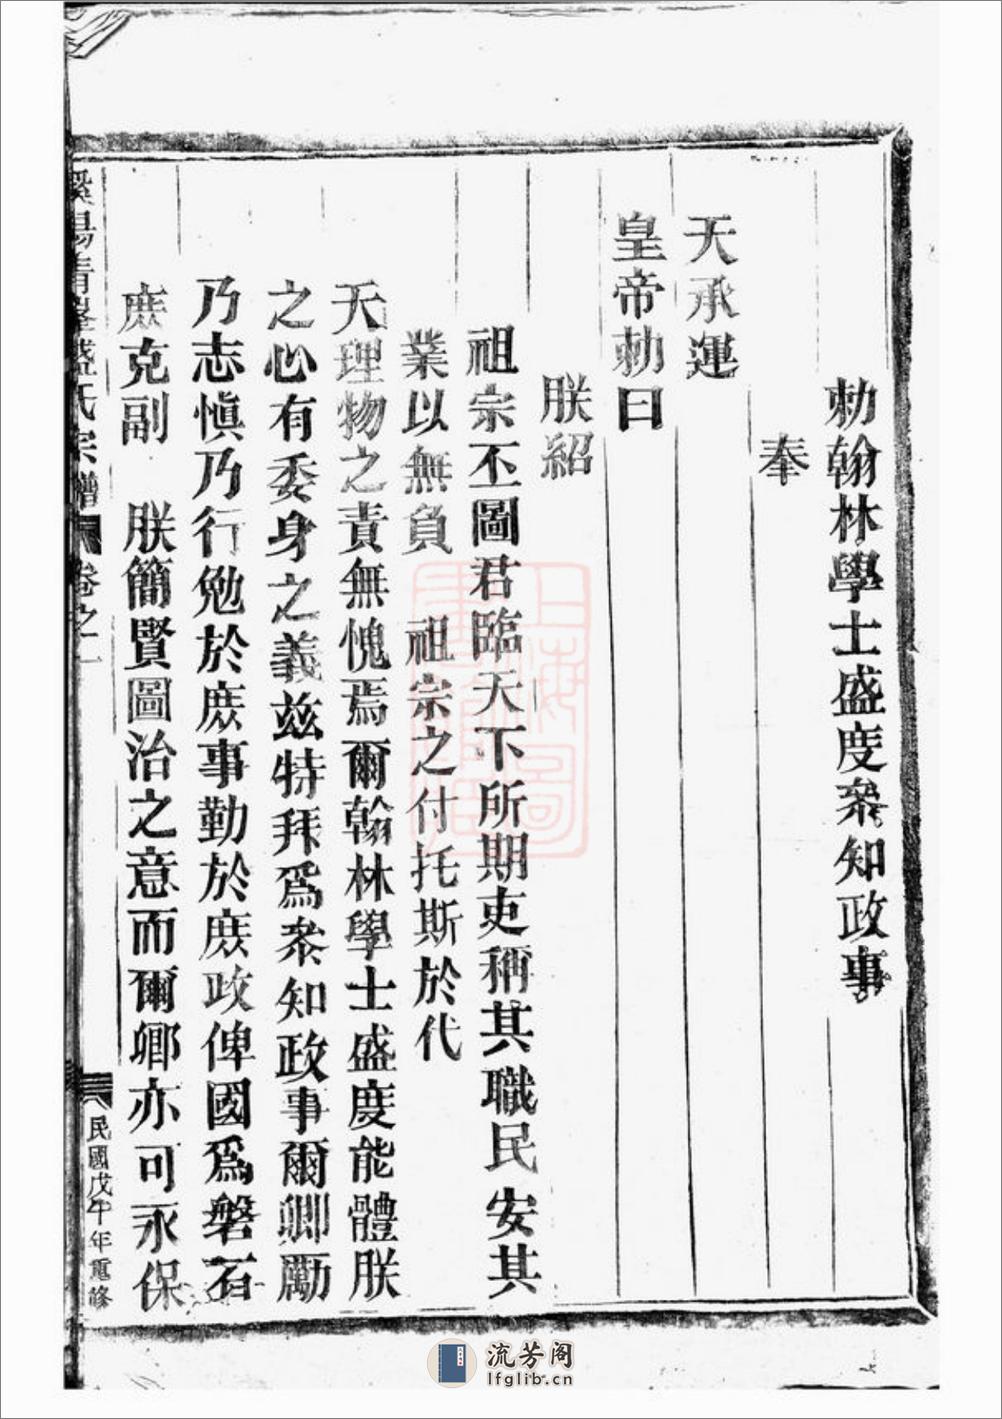 勅翰林學士盛度叅知政事
奉
天承運
皇帝勅曰
朕紹
祖宗丕圖君臨天下所期吏稱其職民安其
業以無負　祖宗之付托斯於代
天理物之責無愧焉爾翰林學士盛度能體朕
之心有委身之義茲特拜爲叅知政事爾卿勵
乃志愼乃行勉於庶事勤於庶政俾國爲磐石
庶克副　朕簡賢圖治之意而爾鄉亦可永保
陽青 盛氏宗譜 卷之一 民國戊午年重修
上海圖書館藏
流芳阁
lfglib.cn